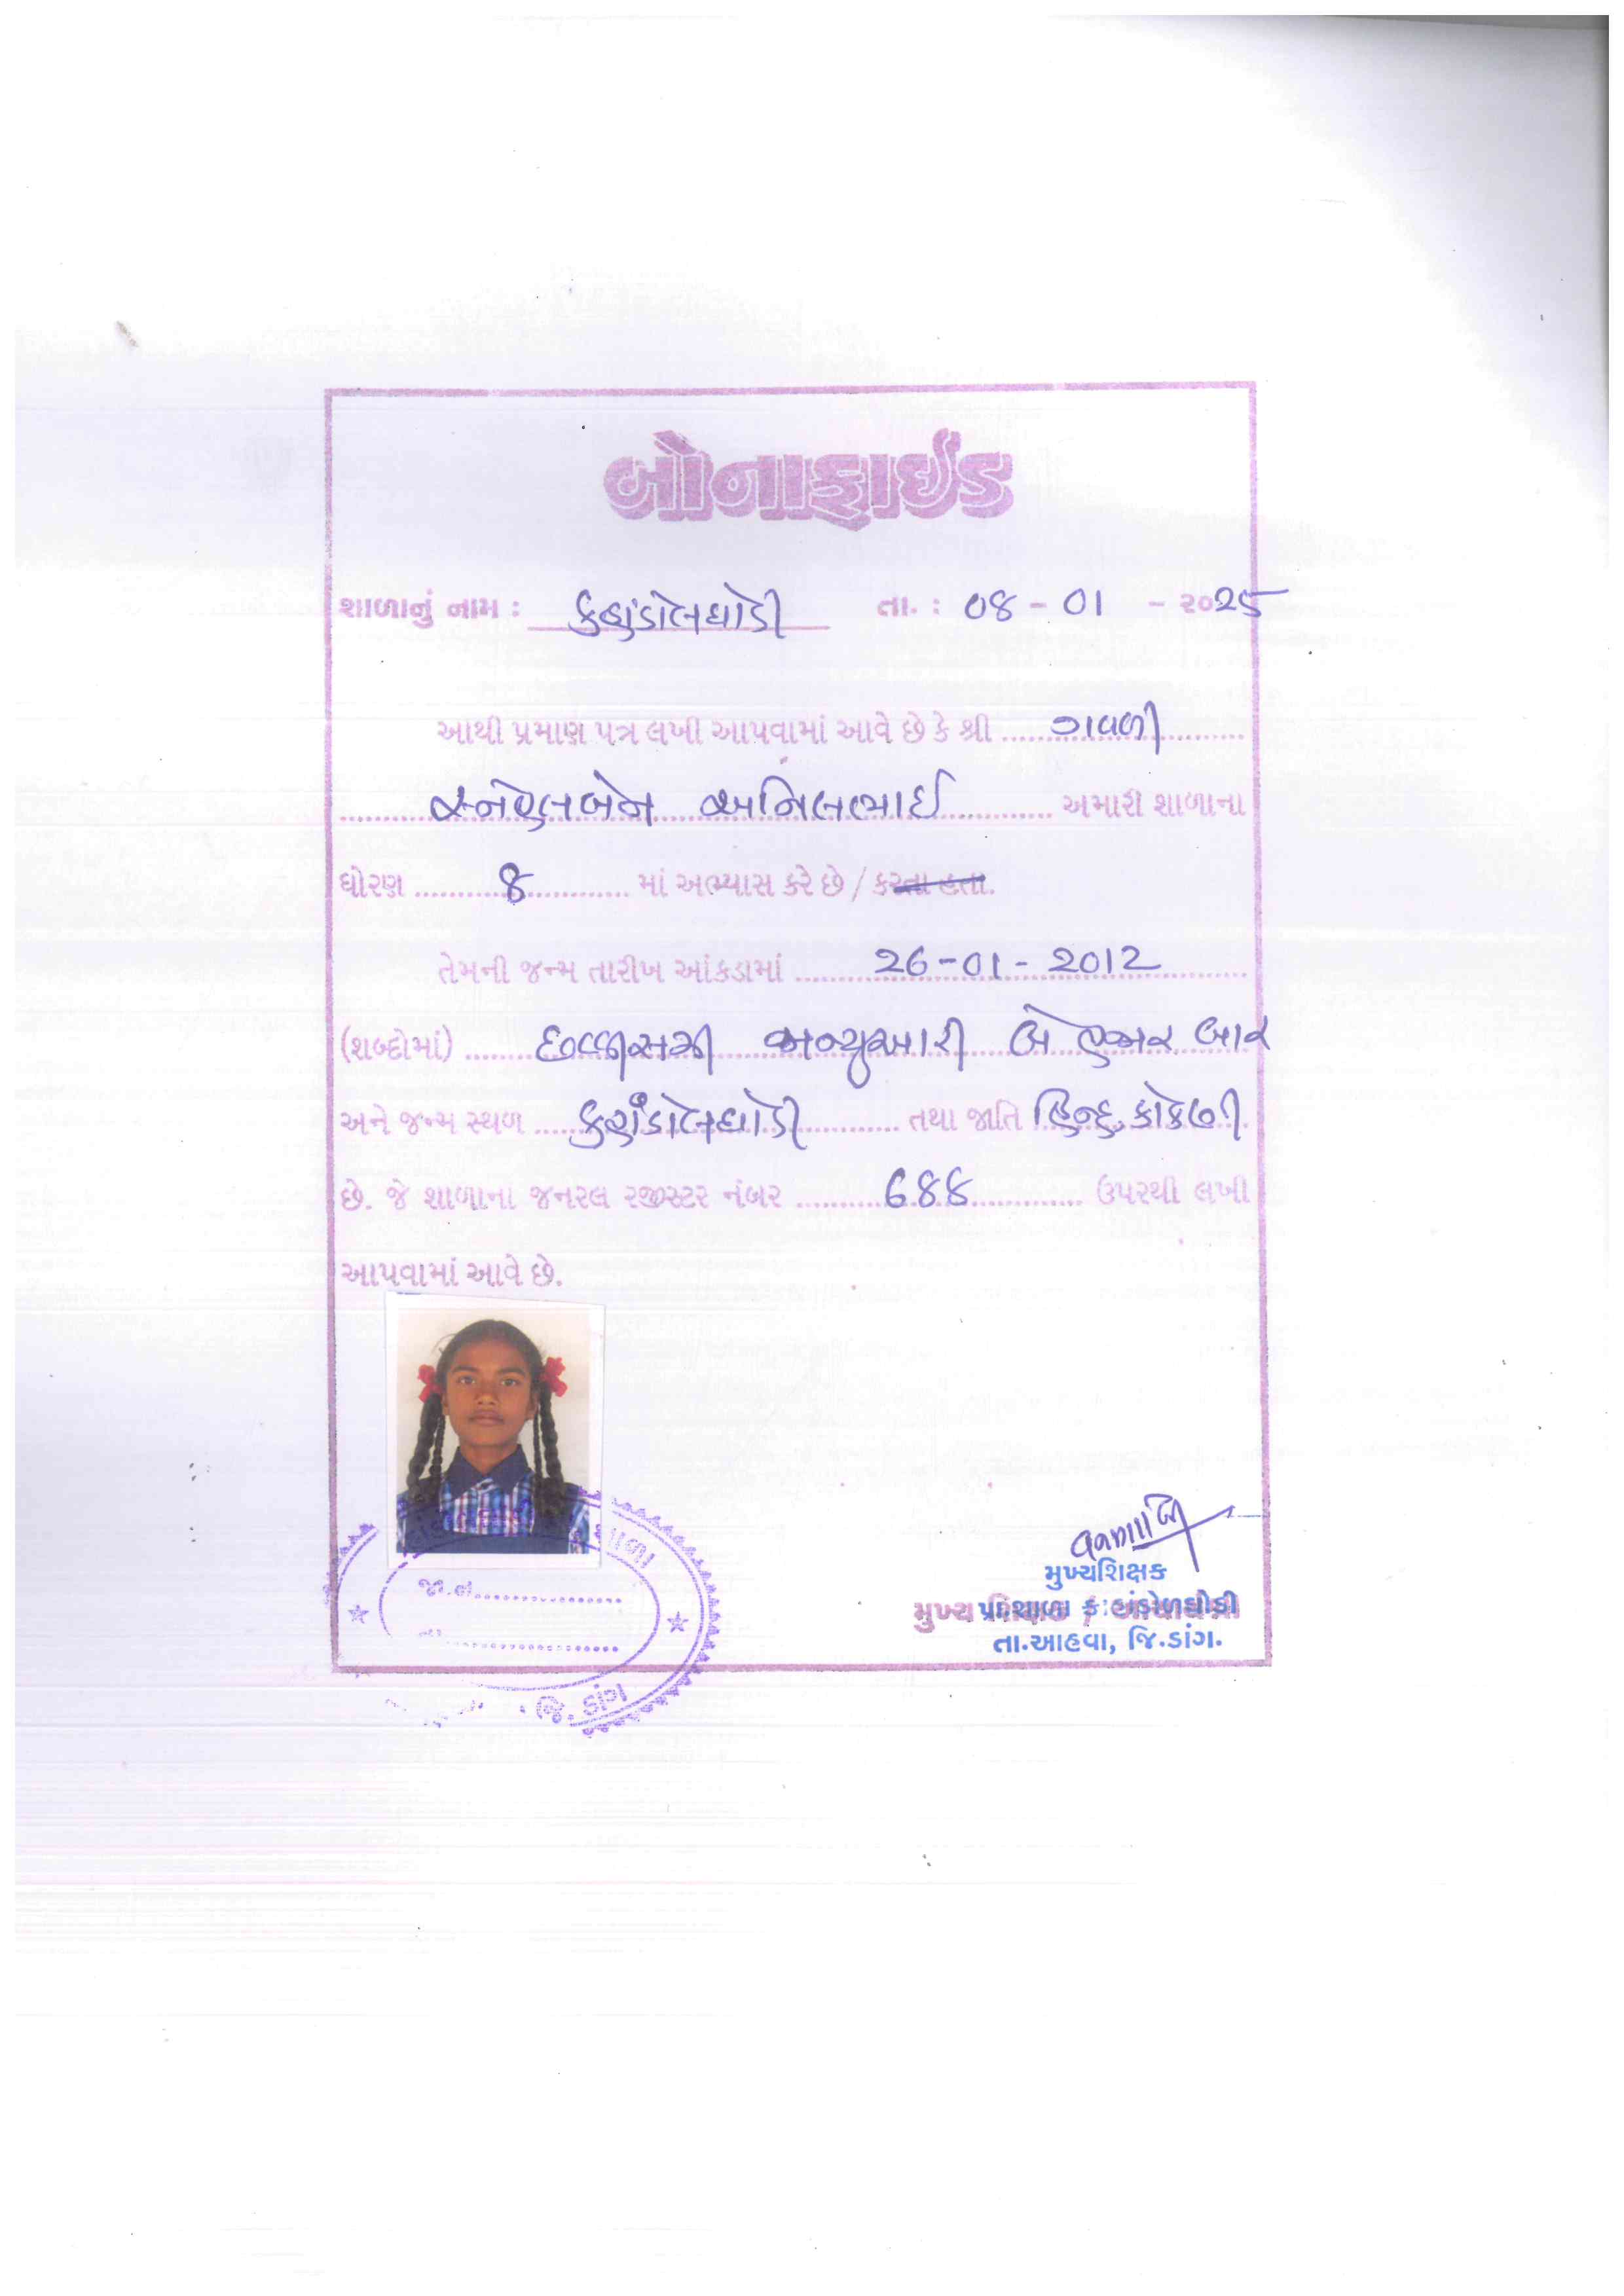 બોનાફાઈડ
શાળાનું નામ : કુહાંડોલઘોડી તા. : 08 - 01 - ૨૦25
આથી પ્રમાણ પત્ર લખી આપવામાં આવે છે કે શ્રી ગવળી
સ્નેહલબેન અનિલભાઈ અમારી શાળાના
ધોરણ 8 માં અભ્યાસ કરે છે / કરતા હતા.
તેમની જન્મ તારીખ આંકડામાં 26-01-2012
(શબ્દોમાં) છવ્વીસમી જાન્યુઆરી બે હજાર બાર
અને જન્મ સ્થળ તથા જાતિ હિન્દુ, કોકણી
છે. જે શાળાના જનરલ રજીસ્ટર નંબર 688 ઉપરથી લખી
આપવામાં આવે છે.
જા.નં.
મુખ્યશિક્ષક
મુખ્ય પ્રા.શાળા
તા.આહવા, જિ.ડાંગ.
જિ. ડાંગ